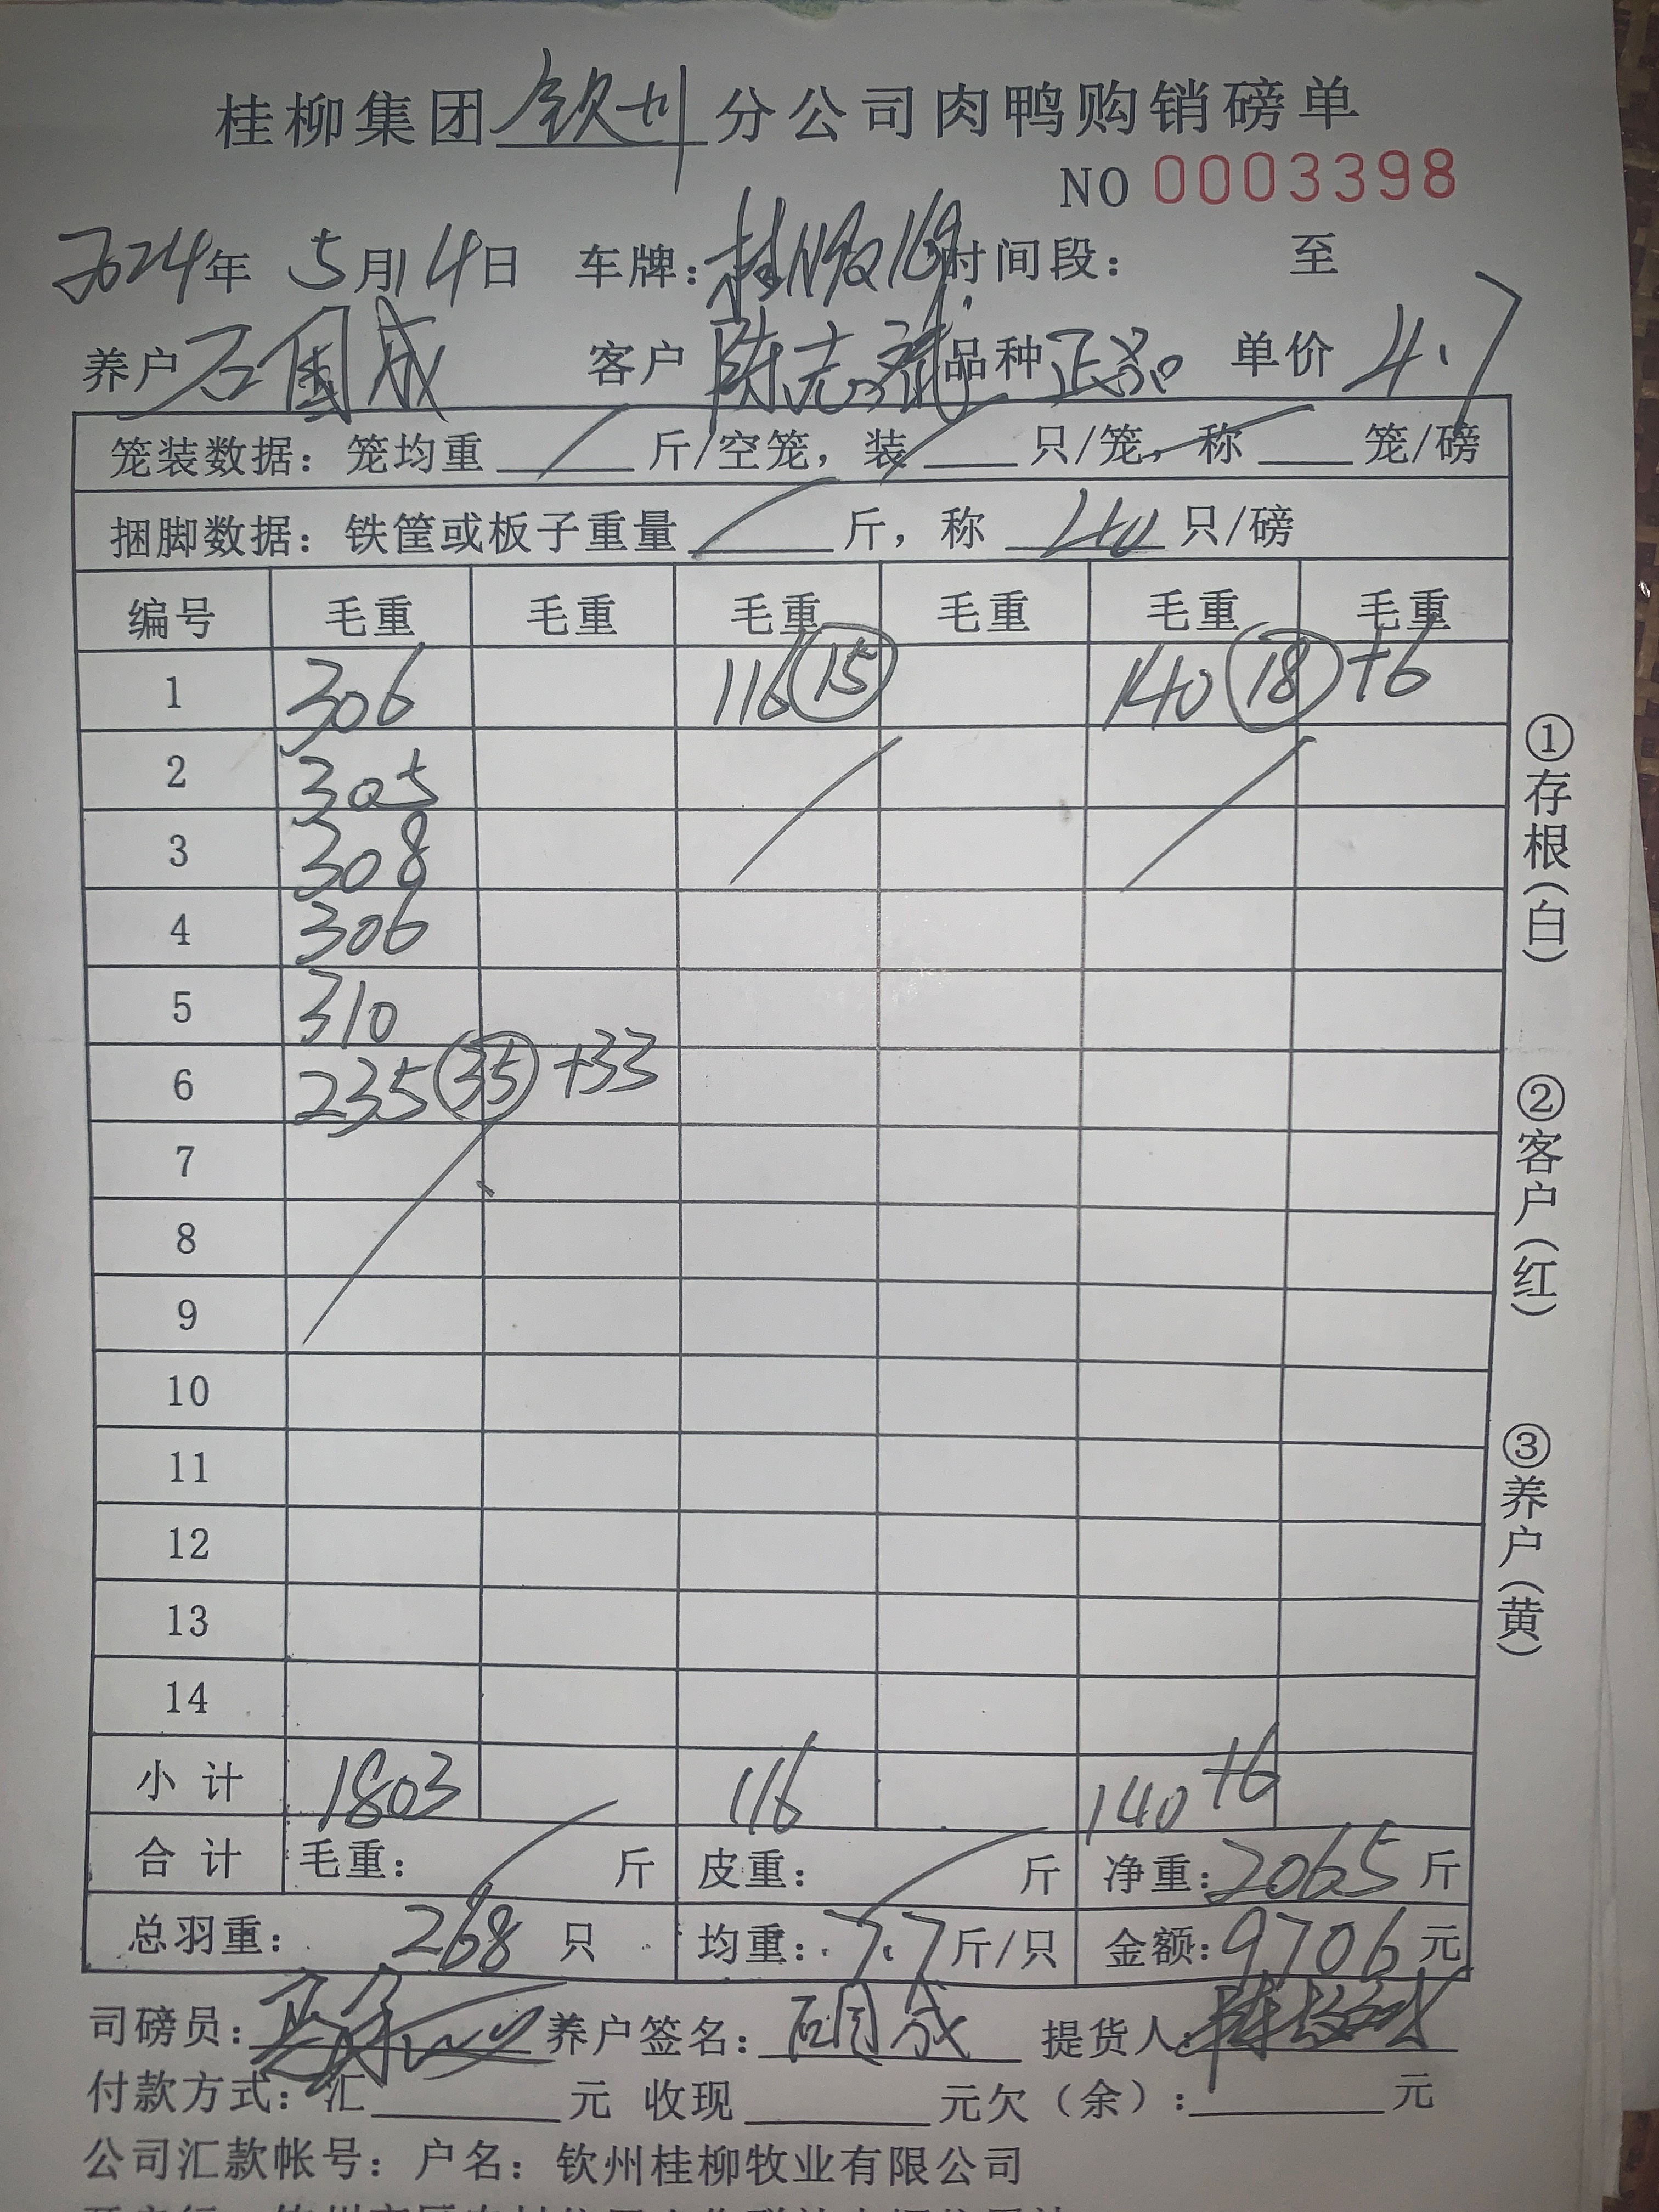 桂柳集团钦州分公司肉鸭购销磅单
NO 0003398
2024年 5月14日 车牌：桂 时间段： 至
养户 石国成 客户 陈志 品种 正品 单价 4.7
笼装数据：笼均重 斤/空笼，装 只/笼，称 笼/磅
捆脚数据：铁筐或板子重量 斤，称 40 只/磅
编号 毛重 毛重 毛重 毛重 毛重 毛重
1 306 116 15 140 18 +6
2 305
3 308
4 306
5 310
6 235 35 +33
7
8
9
10
11
12
13
14
小计 1803 116 140 +6
合计 毛重： 斤 皮重： 斤 净重：2065 斤
总羽重： 268 只 均重：7.7 斤/只 金额：9706 元
司磅员： 养户签名：石国成 提货人：
付款方式：汇 元 收现 元欠（余）： 元
公司汇款帐号：户名：钦州桂柳牧业有限公司
①存根（白）
②客户（红）
③养户（黄）